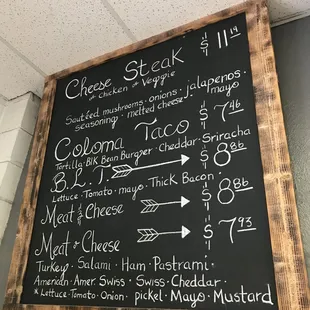 Cheese Steak $11.19
or Chicken or Veggie
Sauteéd mushrooms · onions · jalapenos ·
seasoning · melted cheese · mayo
Coloma Taco $7.46
Tortilla · Blk Bean Burger · Cheddar · Sriracha
B. L. T. $8.86
Lettuce · Tomato · mayo · Thick Bacon ·
Meat & Cheese $8.86
Meat or Cheese $7.93
Turkey · Salami · Ham · Pastrami ·
American · Amer. Swiss · Swiss · Cheddar ·
* Lettuce · Tomato · Onion · pickel · Mayo · Mustard